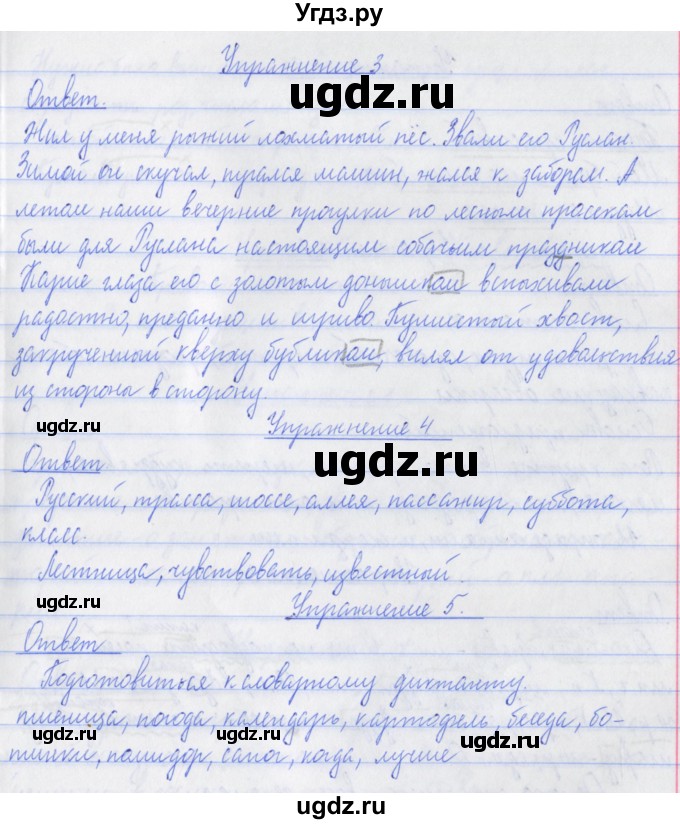 Угдз.ру
Упражнение 3
ugdz.ru
Ответ.
Жил у меня рыжий лохматый пёс. Звали его Руслан.
Зимой он скучал, пугался машин, жался к заборам. А
летом наши вечерние прогулки по лесным просекам
были для Руслана настоящим собачьим праздником
Карие глаза его с золотым донышком вспыхивали
радостно, преданно и игриво. Пушистый хвост,
закрученный кверху бубликом, вилял от удовольствия
из стороны в сторону.
ugdz.ru
Упражнение 4
ugdz.ru
Ответ
Русский, трасса, шоссе, аллея, пассажир, суббота,
класс.
Лестница, чувствовать, известный.
ugdz.ru
Упражнение 5.
Ответ
Подготовиться к словарному диктанту.
пшеница, погода, календарь, картофель, беседа, бо-
тинки, помидор, сапог, когда, лучше
ugdz.ru
ugdz.ru